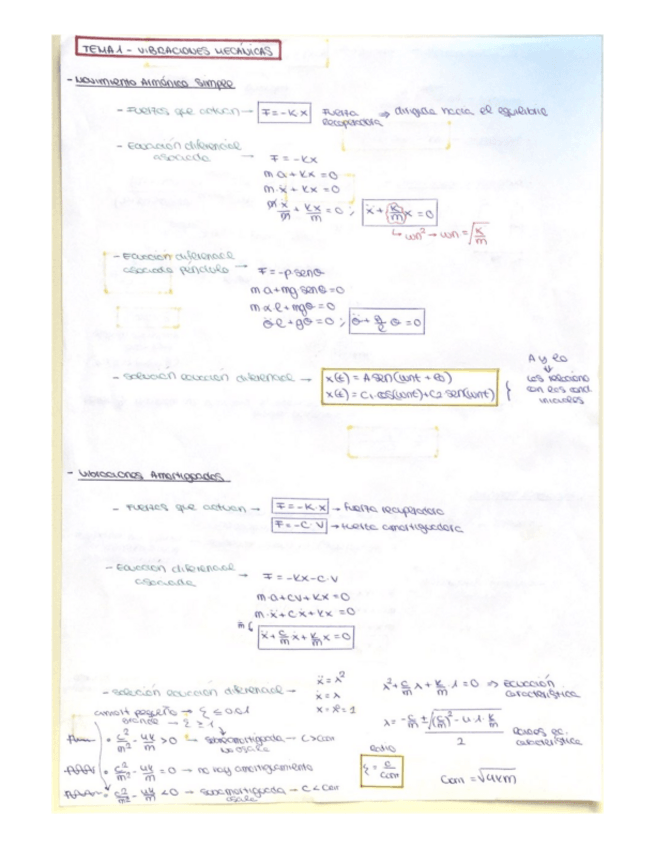 TEMA 1 - VIBRACIONES MECÁNICAS
- Movimiento Armónico Simple
- Fuerzas que actúan → F = -K·x Fuerza recuperadora ⇒ dirigida hacia el equilibrio
- Ecuación diferencial asociada → F = -Kx
m a + Kx = 0
m·ẍ + Kx = 0
m ẍ/m + Kx/m = 0 ; ẍ + K/m x = 0
↳ wn² → wn = √K/m
- Ecuación diferencial asociada péndulo → F = -p senθ
m a + mg senθ = 0
m α l + mgθ = 0
θ̈ l + gθ = 0 ; θ̈ + g/l θ = 0
- Solución ecuación diferencial → x(t) = A sen(wnt + φ)
x(t) = C1·cos(wnt) + C2·sen(wnt)
A y φ
⇓
los relaciono
con las cond
iniciales
- Vibraciones Amortiguadas
- Fuerzas que actúan → F = -K·x → fuerza recuperadora
F = -C·V → fuerza amortiguadora
- Ecuación diferencial asociada → F = -Kx - C·V
m·a + CV + Kx = 0
m·ẍ + Cẋ + Kx = 0
ẍ + C/m ẋ + K/m x = 0
- Solución ecuación diferencial →
ẍ = λ²
ẋ = λ
λ² + C/m λ + K/m · 1 = 0 ⇒ Ecuación característica
λ = -C/m ± √(C/m)² - 4·1·K/m / 2
característica
amort pequeño → ξ ≤ 0,1
grande → ξ ≥ 1
= C²/m² - 4K/m > 0 → sobreamortiguada → C > Ccri
No oscila
= C²/m² - 4K/m = 0 → no hay amortiguamiento
= C²/m² - 4K/m < 0 → subamortiguada → C < Ccri
oscila
Ratio
ξ = C/Ccri
Ccri = √4Km